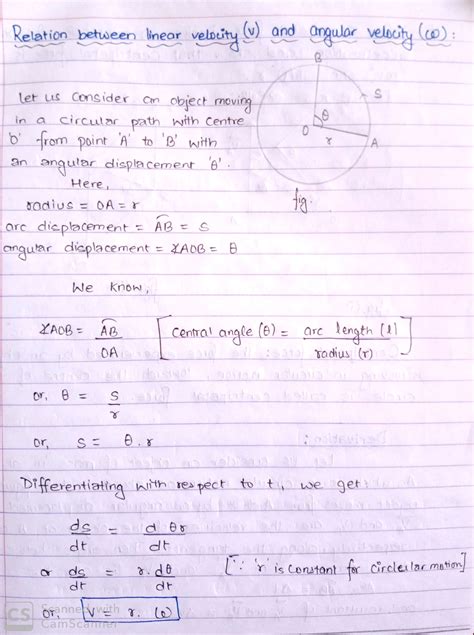 Relation between linear velocity (v) and angular velocity (ω) :
B
S
θ
O
r
A
fig:
let us consider an object moving
in a circular path with centre
'o' from point 'A' to 'B' with
an angular displacement 'θ'.
Here,
radius = OA = r
arc displacement = AB = S
angular displacement = ∡AOB = θ
We know,
∡AOB = AB/OA [central angle (θ) = arc length (l)/radius (r)]
or, θ = S/r
or, S = θ.r
Differentiating with respect to t, we get:
ds/dt = d θr/dt
or ds/dt = r.dθ/dt [∵ 'r' is constant for circular motion]
or, V = r. ω
CS Scanned with
CamScanner